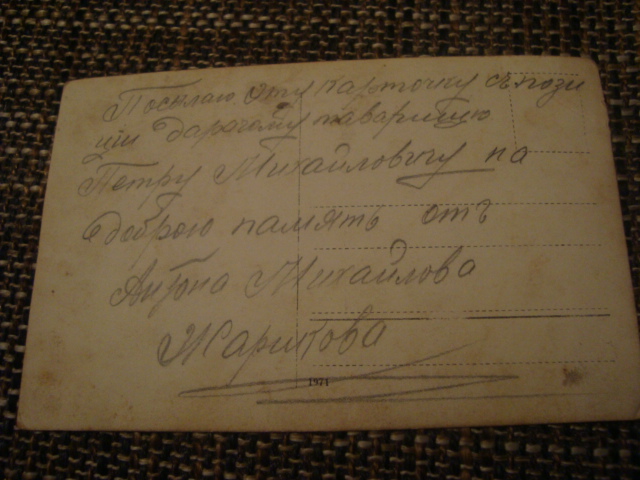 Посылаю эту карточку съ пози
ціи дарагому таварищу
Петру Михайловичу на
доброю память отъ
Антона Михайлова
Жаритова
1974